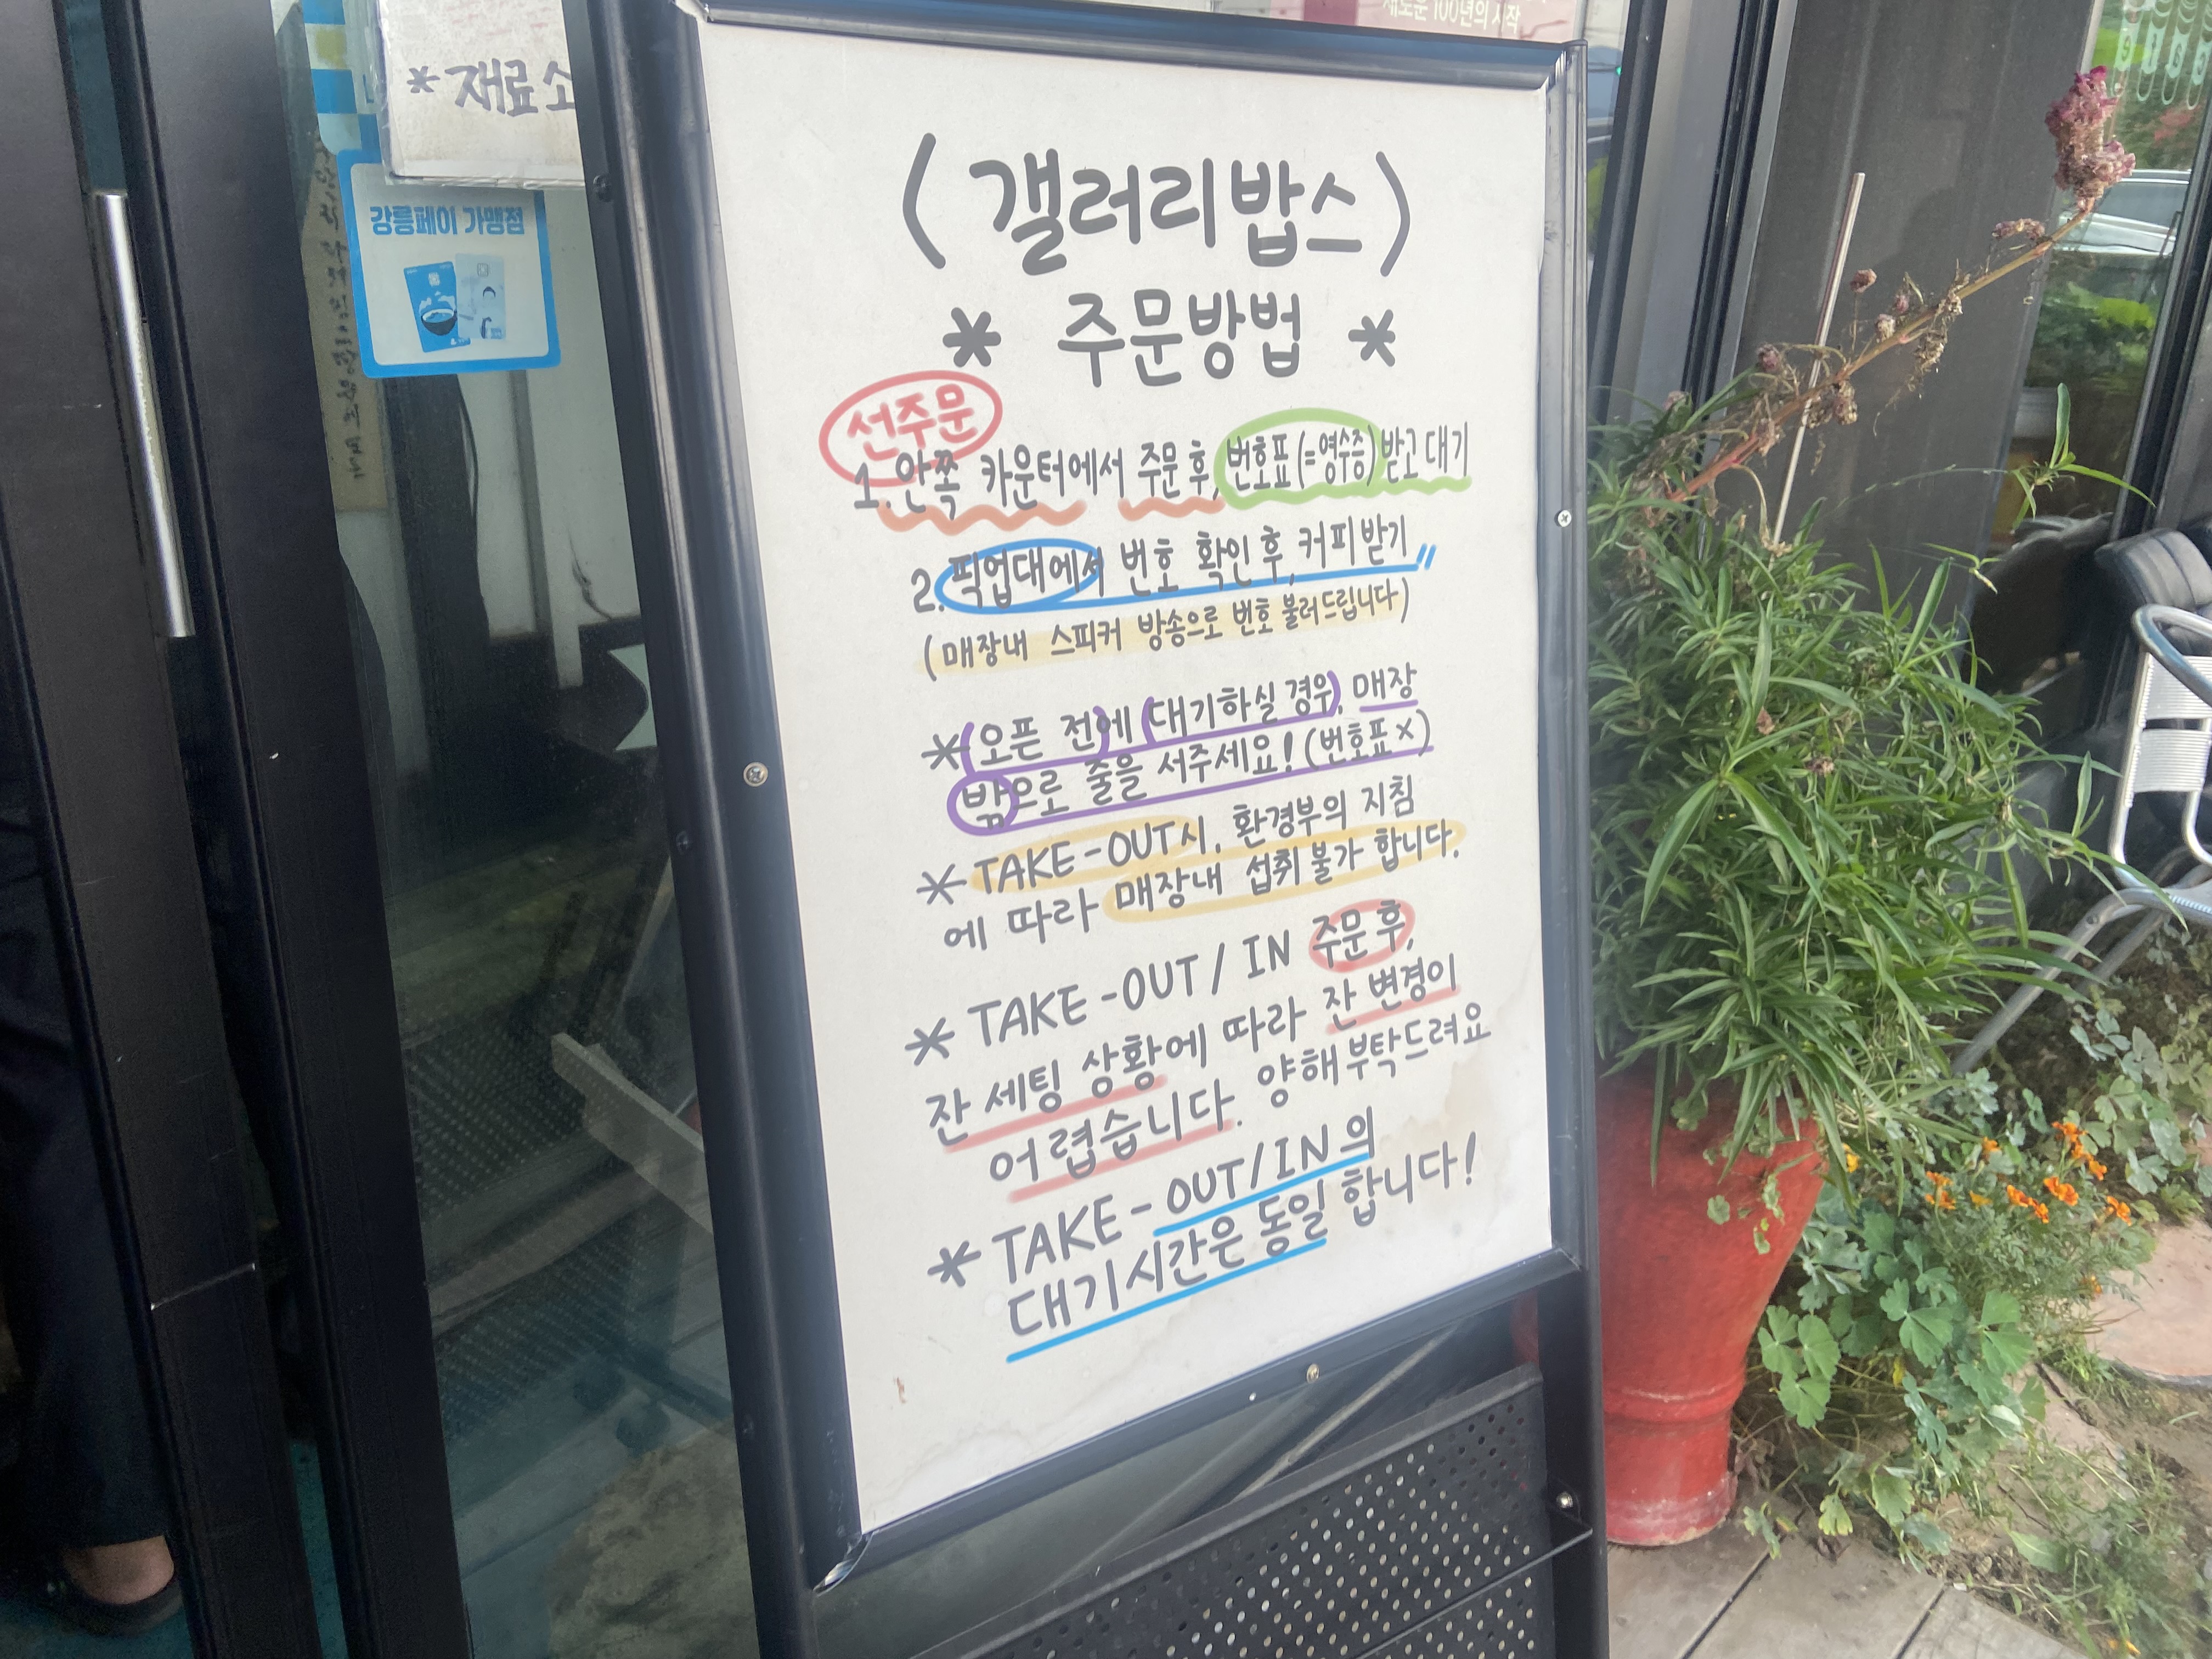 새로운 100년의 시작
*재료소
강릉페이 가맹점
〈갤러리밥스〉
* 주문방법 *
선주문
1. 안쪽 카운터에서 주문 후, 번호표(=영수증) 받고 대기
2. 픽업대에서 번호 확인 후, 커피 받기
(매장내 스피커 방송으로 번호 불러드립니다)
*오픈 전에 대기하실 경우, 매장
밖으로 줄을 서주세요! (번호표×)
* TAKE-OUT시, 환경부의 지침
에 따라 매장내 섭취 불가 합니다.
* TAKE-OUT / IN 주문 후,
잔 세팅 상황에 따라 잔 변경이
어렵습니다. 양해부탁드려요
* TAKE-OUT/IN의
대기시간은 동일 합니다!